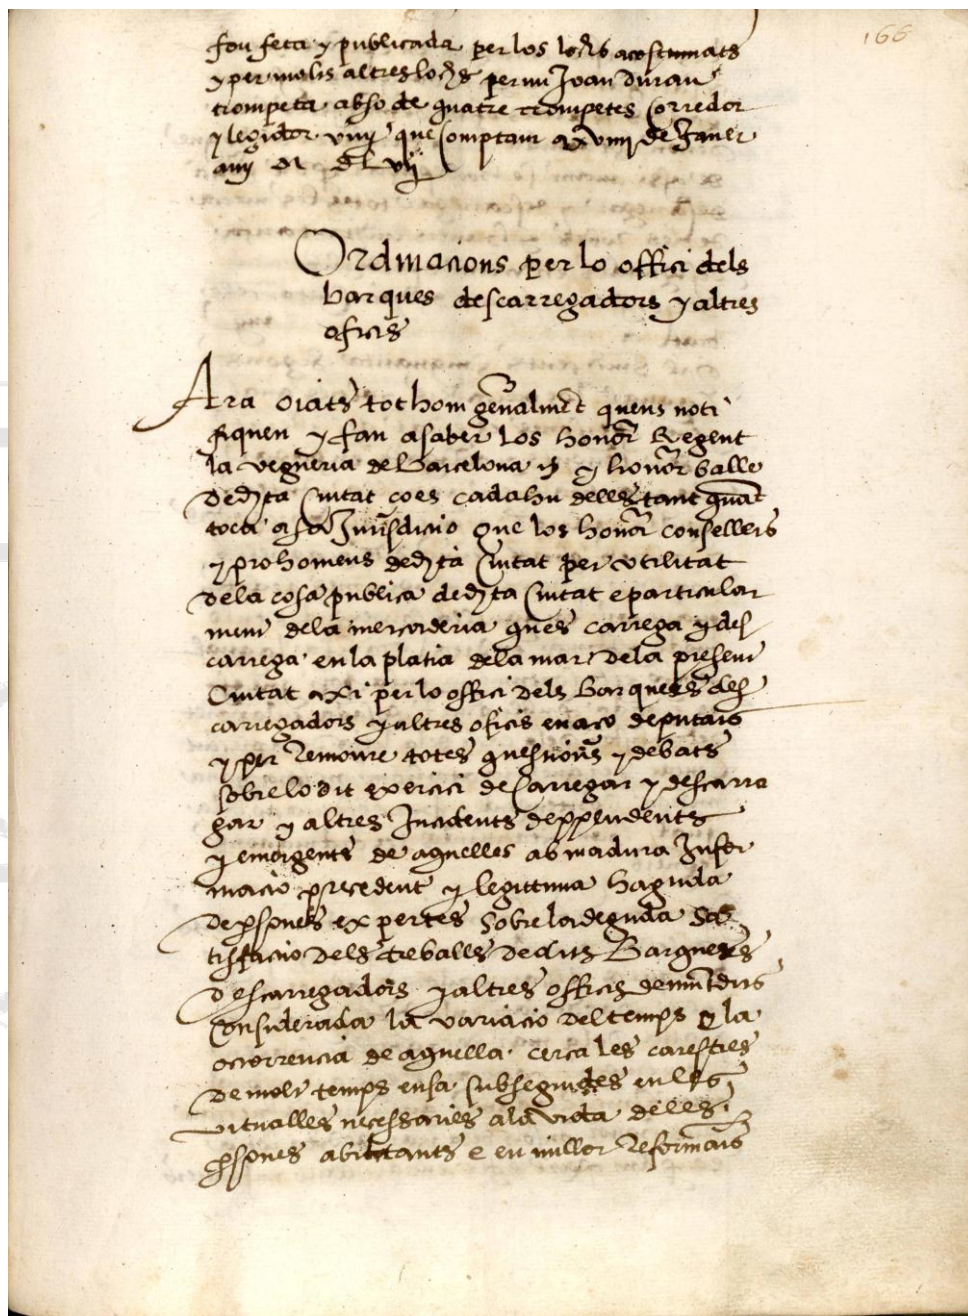 166
fou feta y publicada per los lochs acostumats
y per molts altres lochs per mi Joan Duran
trompeta abso de quatre trompetes Corredor
y legidor vuy que Comptam a xviiij de Janer
any M DLvij
Ordinacions per lo offici dels
barques descarregadors y altres
oficis
Ara oiats tothom generalment quens noti
fiquen y fan asaber los honor Regent
la vegueria de Barcelona y honor balle
de dita Ciutat ço es cadahu delles tant quant
toca a sa Jurisdicio Que los honor consellers
y prohomens de dita Ciutat per utilitat
dela cosa publica de dita Ciutat e particular
ment dela mercaderia ques carrega y des
carrega en la platia dela mar dela present
Ciutat axi per lo offici dels Barquers des
carregadors y altres oficis en aço deputats
y per Remoure totes questions y debats
sobre lo dit exercici de Carregar y descarre
gar y altres Incidents dependents
y emergents de aquelles ab madura Infor
macio precedent y legittima haguda
de psones expertes sobre la deguda sa
tisfacio dels treballs de dits Barquers
descarregadors y altres officis demuntdits
Considerada la variacio del temps e la
ocorrencia de aquella cerca les caresties
de molt temps ensa subseguides en les
vitualles necessaries ala vida de les
psones abitants e en millor Reformant